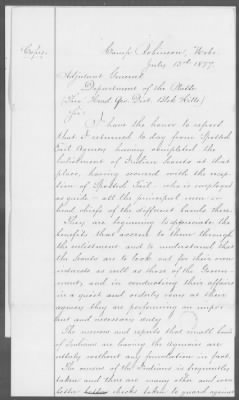 Copy.
Camp Robinson, Nebr.
July 13th 1877.
Adjutant General
Department of the Platte
(Thro' Head Qrs. Dist. Black Hills)
Sir:
I have the honor to report
that I returned to day from Spotted
Tail Agency having completed the
enlistment of Indian Scouts at that
place, having secured with the excep-
tion of Spotted Tail - who is employed
as guide - all the principal men or
head chiefs of the different bands there.
They are beginning to appreciate the
benefits that accrue to them through
the enlistment and to understand that
the Scouts are to look out for their own
interests as well as those of the Govern-
ment, and in conducting their affairs
in a quiet and orderly way at their
agency they are performing an impor-
tant and necessary duty.
The rumors and reports that small bands
of Indians are leaving the agencies are
utterly without any foundation in fact.
The census of the Indians is frequently
taken and there are many other and even
better checks taken to guard against